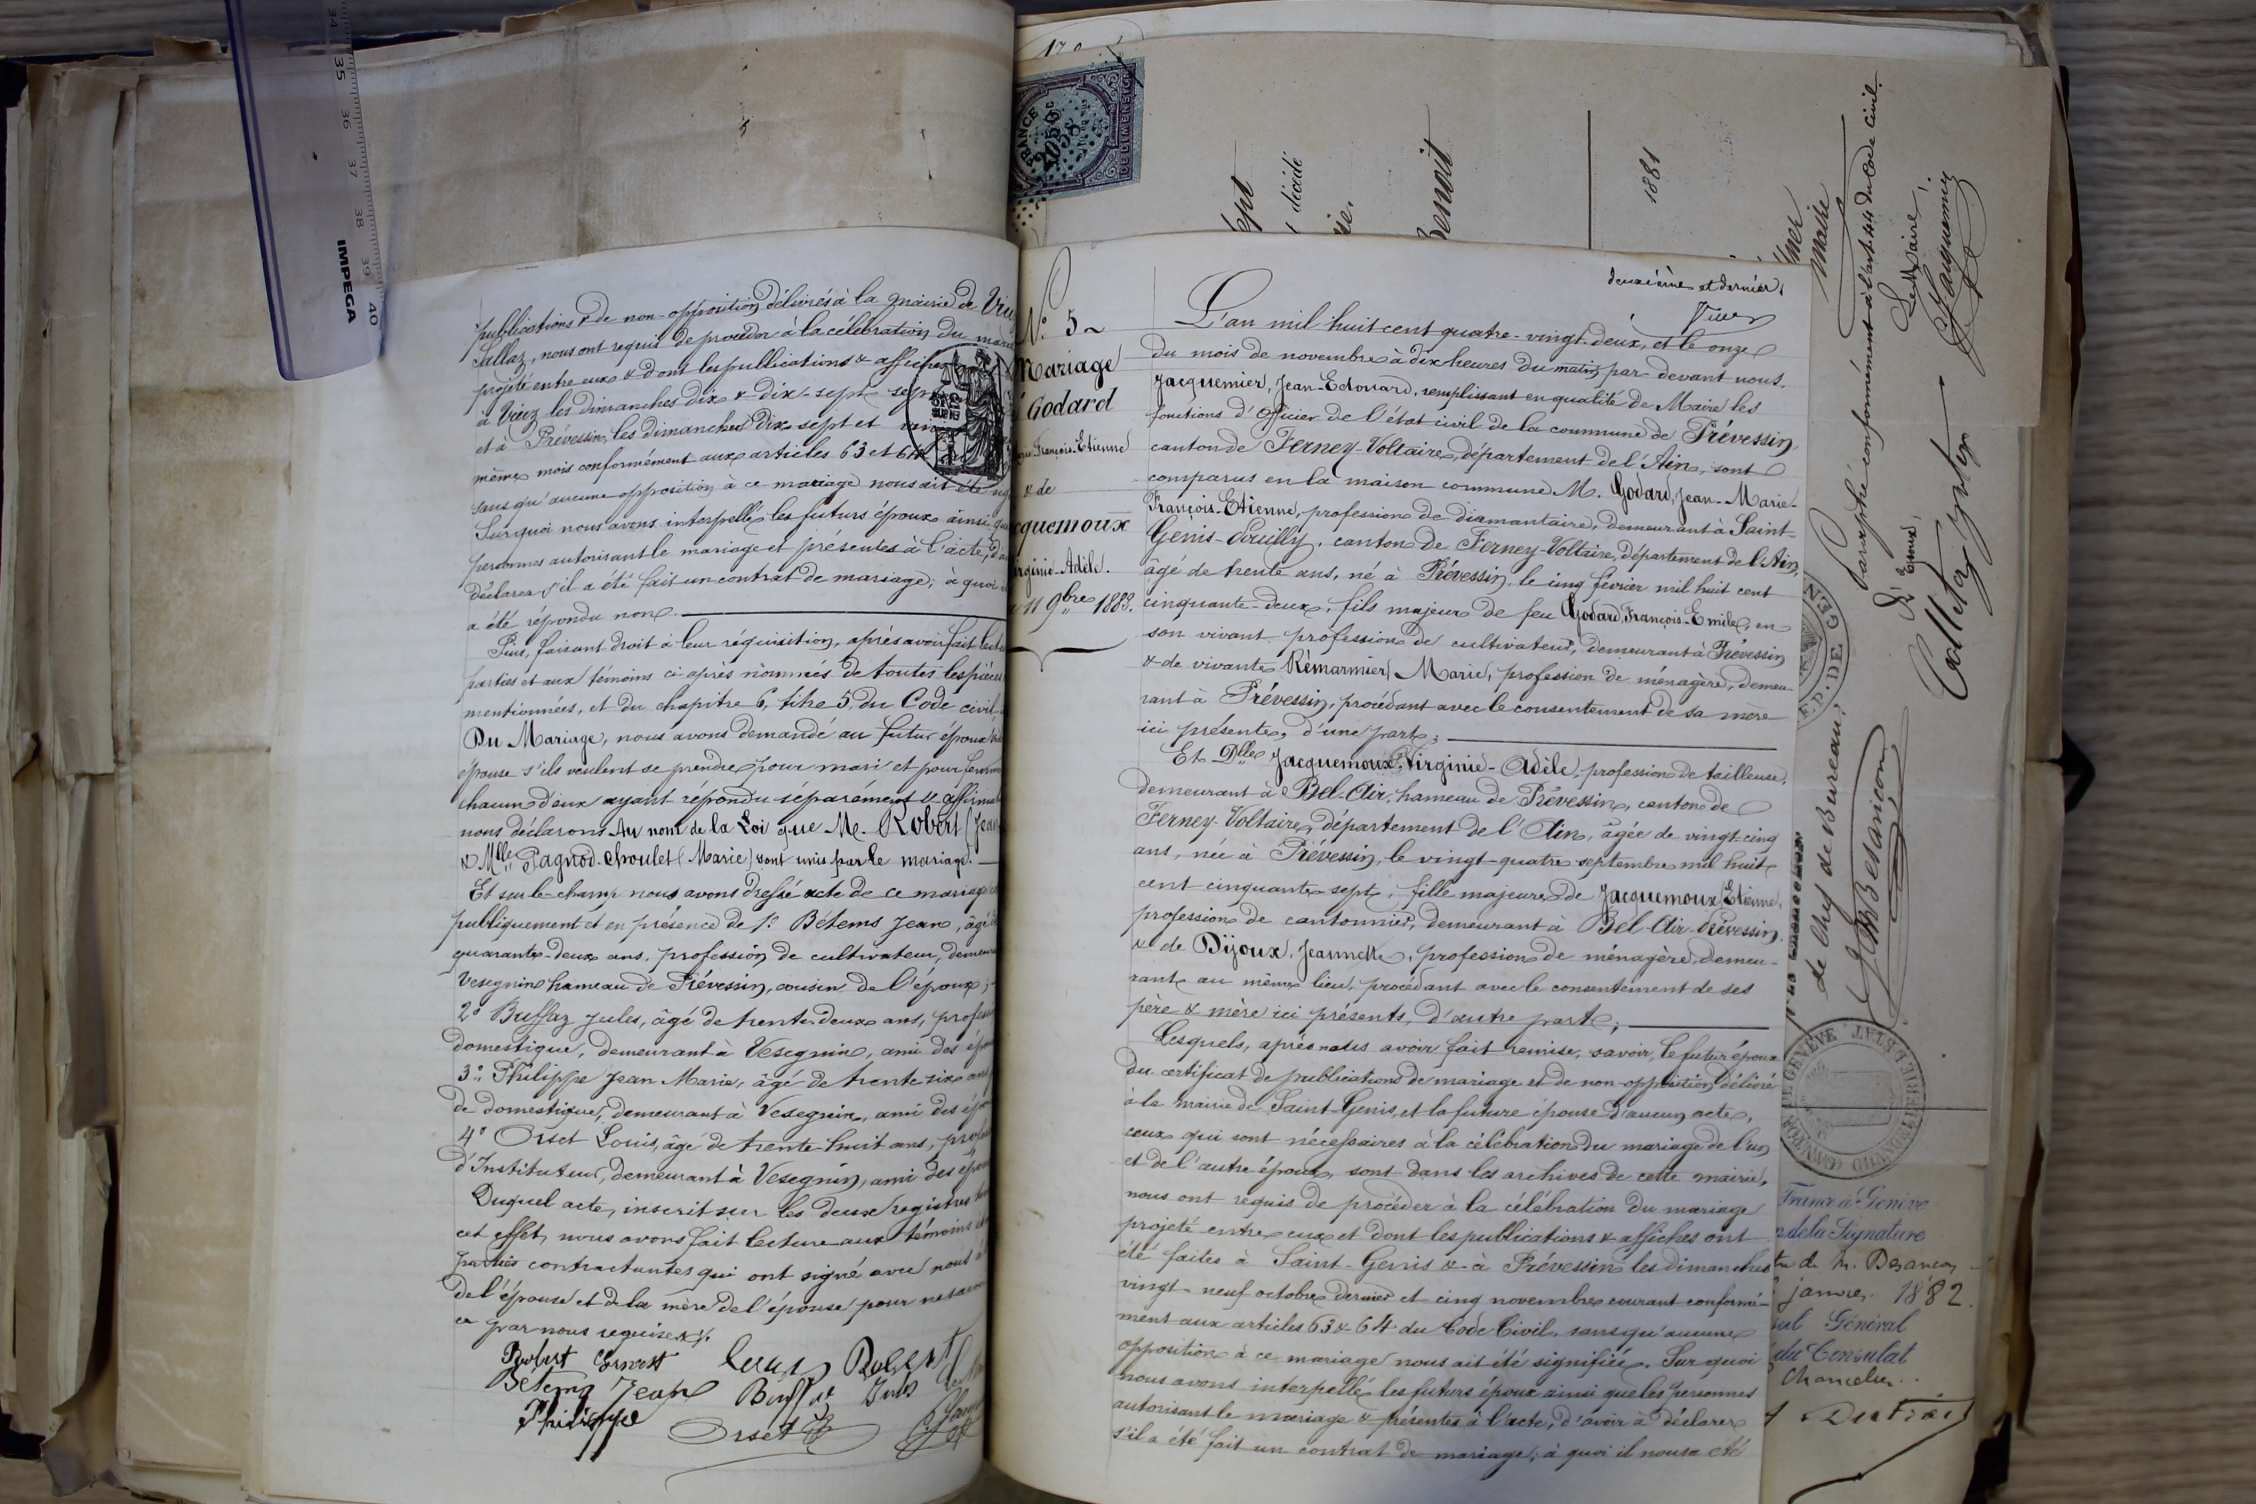 publications & de non-opposition délivrés à la mairie de
Sallaz, nous ont requis de procéder à la célébration du
projeté entre eux & dont les publications & affiches
à les dimanches dix & dix-sept
et à Prévessin, les dimanches dix sept et
même mois conformément aux articles 63 et 64
sans qu'aucune opposition à ce mariage nous ait été
Sur quoi nous avons interpellé les futurs époux ainsi que
personnes autorisant le mariage et présentes à l'acte, d'
déclarer s'il a été fait un contrat de mariage; à quoi
a été répondu non.
Puis, faisant droit à leur réquisition, après avoir fait
parties et aux témoins ci-après nommés de toutes les pièces
mentionnées, et du chapitre 6, titre 5, du Code civil,
Du Mariage, nous avons demandé au futur époux
épouse s'ils veulent se prendre pour mari et pour
chacun d'eux ayant répondu séparément &
nous déclarons Au nom de la Loi que M. Robert (Jean
& Mlle Pagnod-Choulet (Marie) sont unis par le mariage.
Et sur-le-champ nous avons dressé acte de ce mariage
publiquement et en présence de 1° Bétems Jean, âgé
quarante-deux ans, profession de cultivateur,
Vesegnin hameau de Prévessin, cousin de l'époux;
2° Buffaz Jules, âgé de trente-deux ans,
domestique, demeurant à Vesegnin, ami des
3° Philippe Jean Marie, âgé de trente-six ans
de domestique, demeurant à Vesegnin, ami des
4° Orset Louis, âgé de trente-huit ans,
d'Instituteur, demeurant à Vesegnin, ami des
Duquel acte, inscrit sur les deux registres
cet effet, nous avons fait lecture aux témoins
parties contractantes qui ont signé avec nous
de l'épouse et de la mère de l'épouse pour ne
ce par nous requises.
Robert Ernest Robert
Betems Jean Buffaz Jules
Philippe Orset
deuxième et dernier.
N° 5
Mariage
Godard
François-Etienne
& de
cquemoux
rginie-Adèle.
11 9bre 1882.
L'an mil huit cent quatre-vingt-deux, et le onze
du mois de novembre à dix heures du matin, par-devant nous.
Jacquemier, Jean-Edouard, remplissant en qualité de Maire les
fonctions d'Officier de l'état civil de la commune de Prévessin,
canton de Ferney-Voltaire, département de l'Ain, sont
comparus en la maison commune M. Godard, Jean-Marie-
François-Etienne, profession de diamantaire, demeurant à Saint-
Genis-Pouilly, canton de Ferney-Voltaire, département de l'Ain,
âgé de trente ans, né à Prévessin, le cinq février mil huit cent
cinquante-deux, fils majeur de feu Godard, François-Emile, en
son vivant profession de cultivateur, demeurant à Prévessin
& de vivante Rémarmier, Marie, profession de ménagère, demeu-
rant à Prévessin, procédant avec le consentement de sa mère
ici présente, d'une part;
Et Dlle Jacquemoux, Virginie-Adèle, profession de tailleuse,
demeurant à Bel-Air, hameau de Prévessin, canton de
Ferney-Voltaire, département de l'Ain, âgée de vingt-cinq
ans, née à Prévessin, le vingt-quatre septembre mil huit
cent cinquante-sept, fille majeure de Jacquemoux, Etienne,
profession de cantonnier, demeurant à Bel-Air-Prévessin
& de Dijoux, Jeannette, profession de ménagère, demeu-
rant au même lieu, procédant avec le consentement de ses
père & mère ici présents, d'autre part;
Lesquels, après nous avoir fait remise, savoir, le futur époux
du certificat de publications de mariage et de non-opposition délivré
à la mairie de Saint-Genis, et la future épouse d'aucun acte,
ceux qui sont nécessaires à la célébration du mariage de l'un
et de l'autre époux, sont dans les archives de cette mairie,
nous ont requis de procéder à la célébration du mariage
projeté entre eux et dont les publications & affiches ont
été faites à Saint-Genis & à Prévessin les dimanches
vingt-neuf octobre dernier et cinq novembre courant conformé-
ment aux articles 63 & 64 du Code Civil, sans qu'aucune
opposition à ce mariage nous ait été signifiée. Sur quoi
nous avons interpellé les futurs époux ainsi que les personnes
autorisant le mariage & présentes à l'acte, d'avoir à déclarer
s'il a été fait un contrat de mariage; à quoi il nous a été
FRANCE
décédé
Benoit
1881
Paraphé conformément à l'art. 44 du Code civil.
Le Maire,
Jacquemier
L'Epoux,
de Chef de Bureau,
France à Genève
de la Signature
de M. Besançon
janvier 1882.
Général
du Consulat
Chancelier
35 36 37 38 39 40
IMPEGA